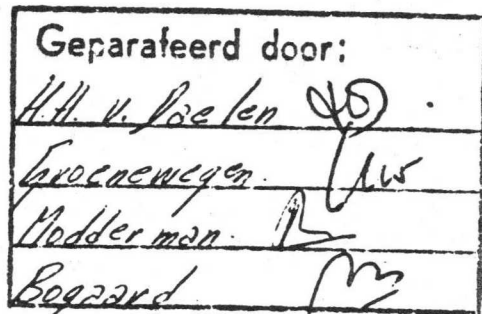 Geparafeerd door:
H.H. v. Daelen
Groenewegen.
Modderman.
Bogaard